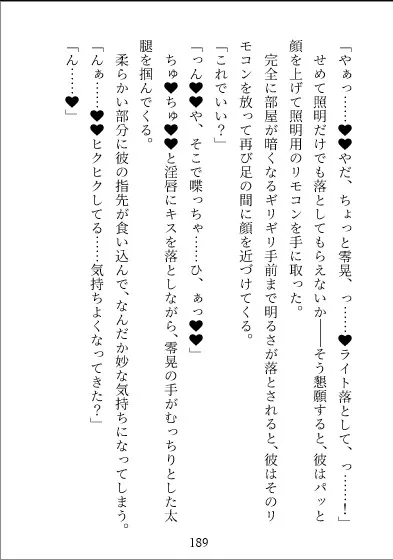 「やぁっ……♥♥やだ、ちょっと零晃、っ……♥ライト落として、っ……！」
せめて照明だけでも落としてもらえないか――そう懇願すると、彼はパッと
顔を上げて照明用のリモコンを手に取った。
完全に部屋が暗くなるギリギリ手前まで明るさが落とされると、彼はそのリ
モコンを放って再び足の間に顔を近づけてくる。
「これでいい？」
「っん♥♥や、そこで喋っちゃ……ひ、ぁっ♥♥」
ちゅ♥ちゅ♥♥と淫唇にキスを落としながら、零晃の手がむっちりとした太
腿を掴んでくる。
柔らかい部分に彼の指先が食い込んで、なんだか妙な気持ちになってしまう。
「んぁ……♥♥ヒクヒクしてる……気持ちよくなってきた？」
「ん……♥」
189